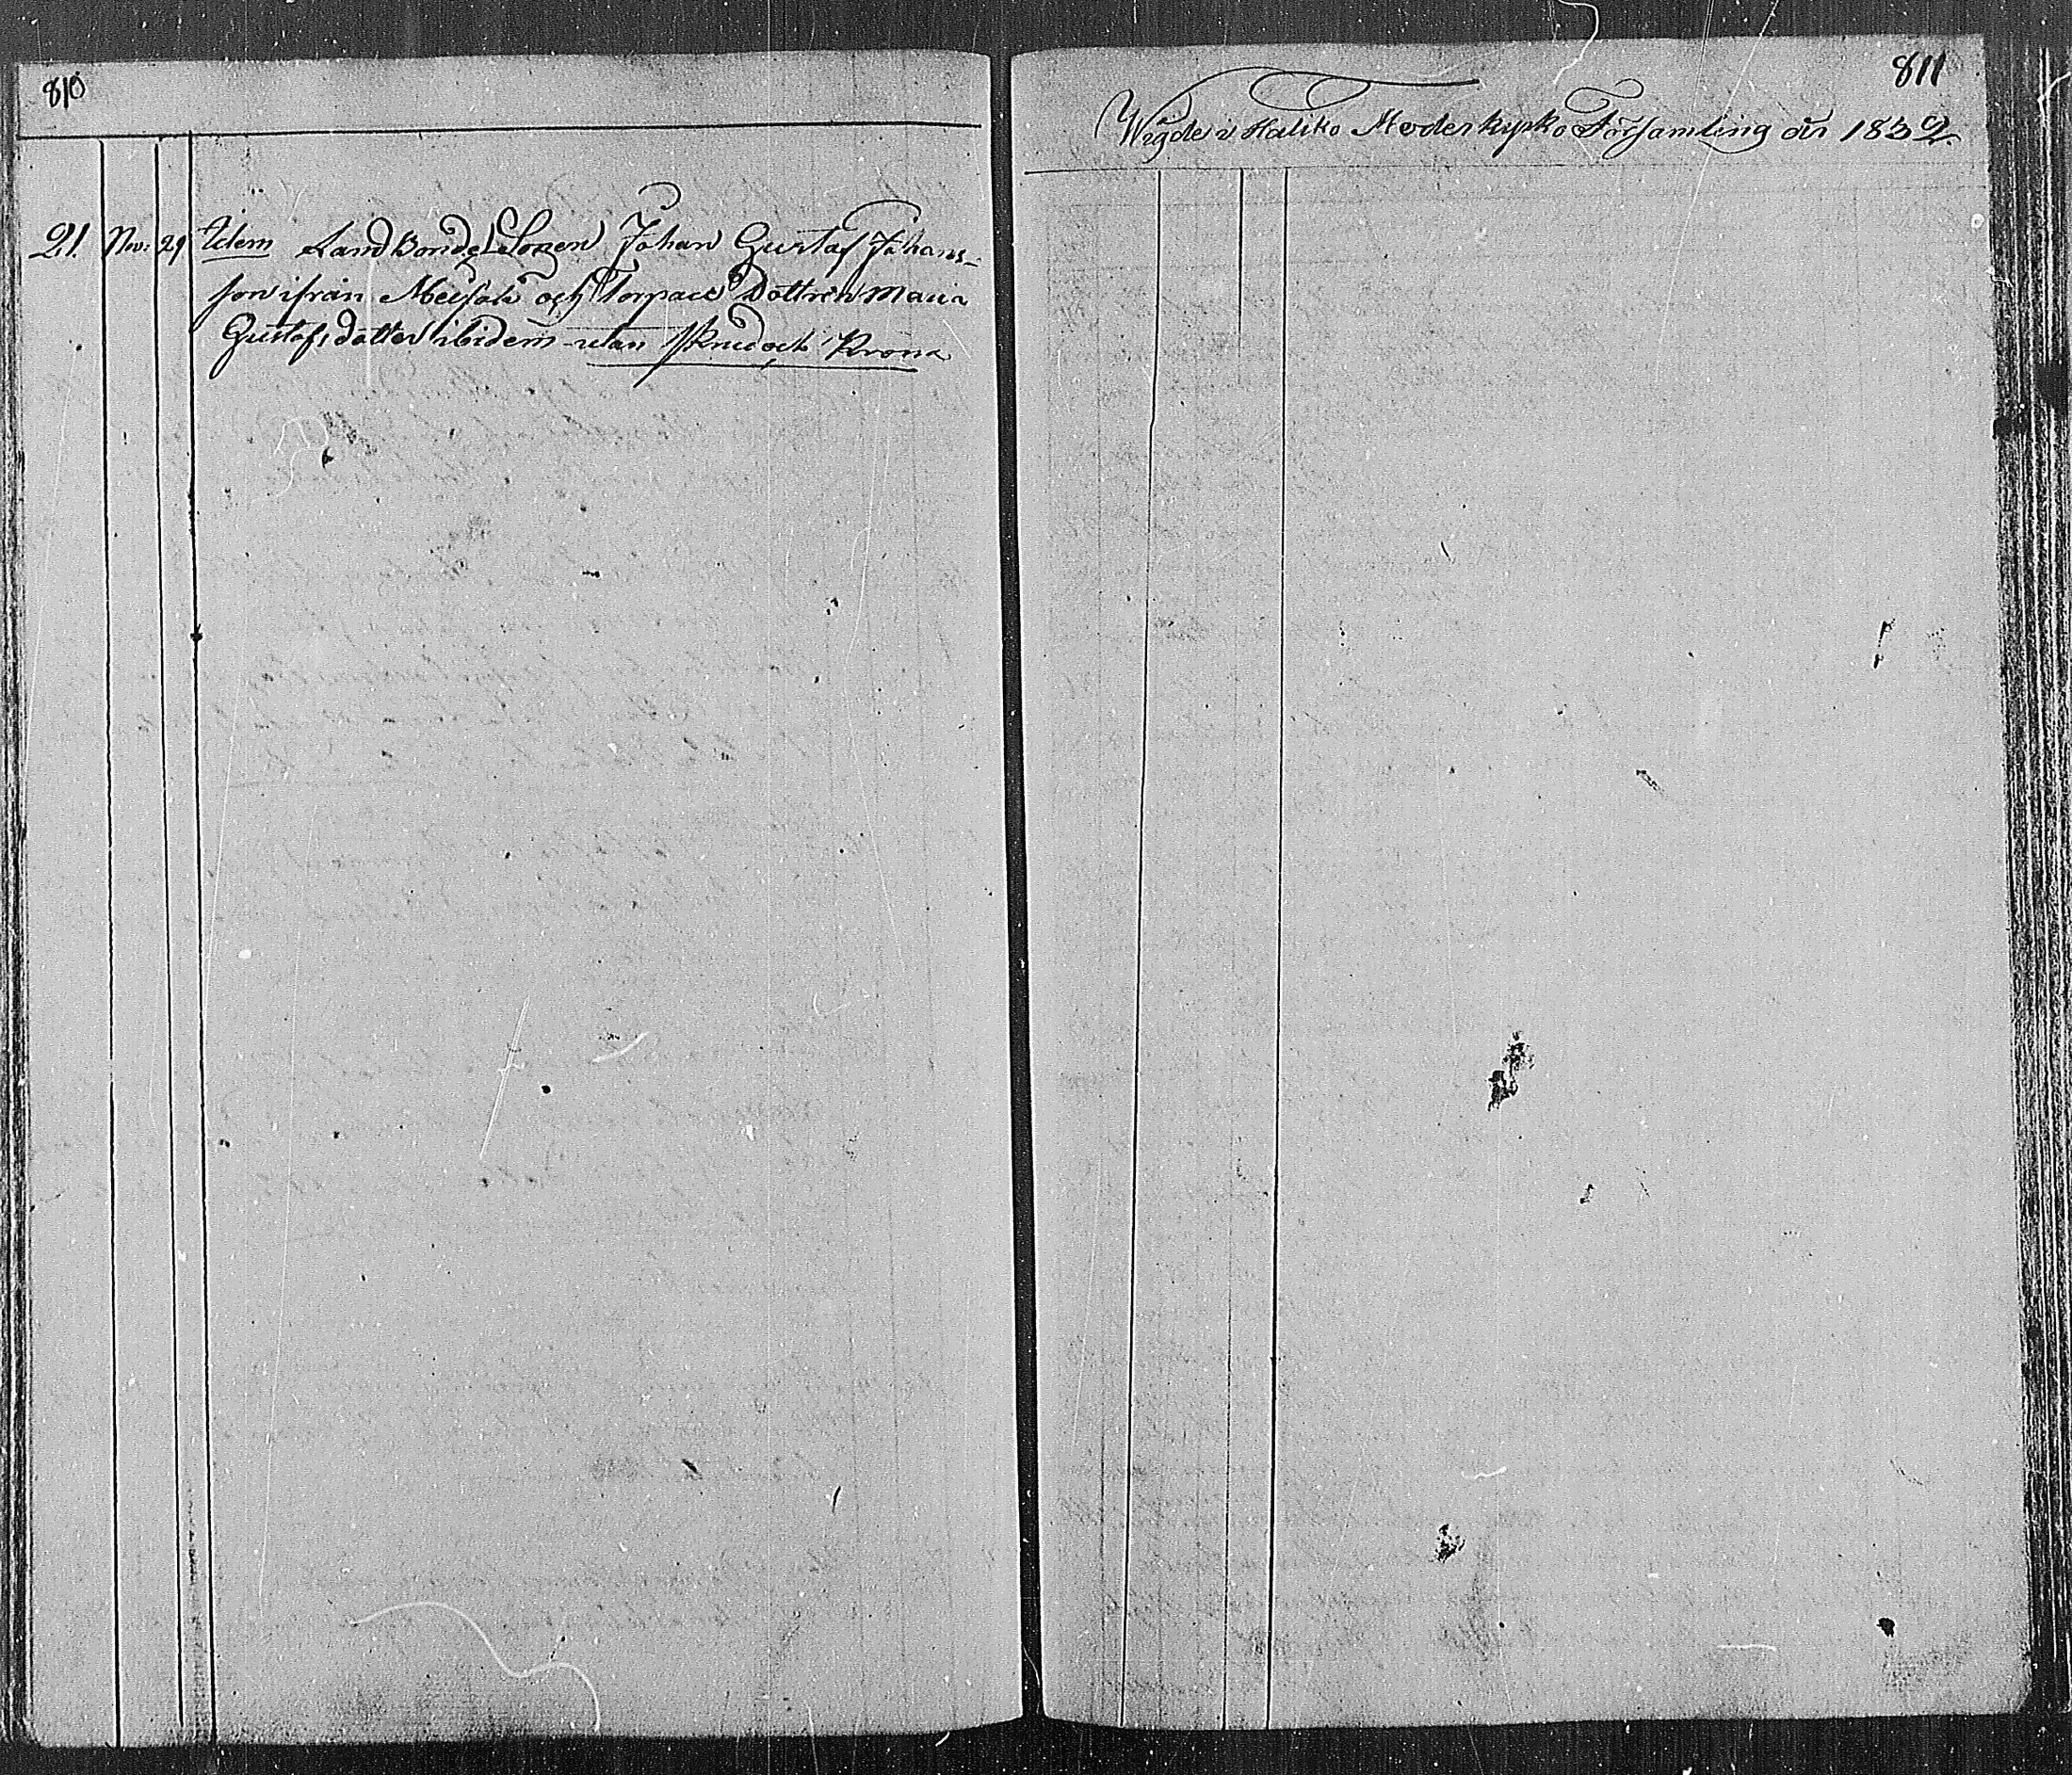 810
21. Nov: 29 Idem LandBonde Sonen Johan Gustaf Johans-
son ifrån och Torpare Dottren Maria
Gustafsdotter ibidem utan skrud och Krona
811
Wigde i Haliko Moderkyrko Församling år 1832.